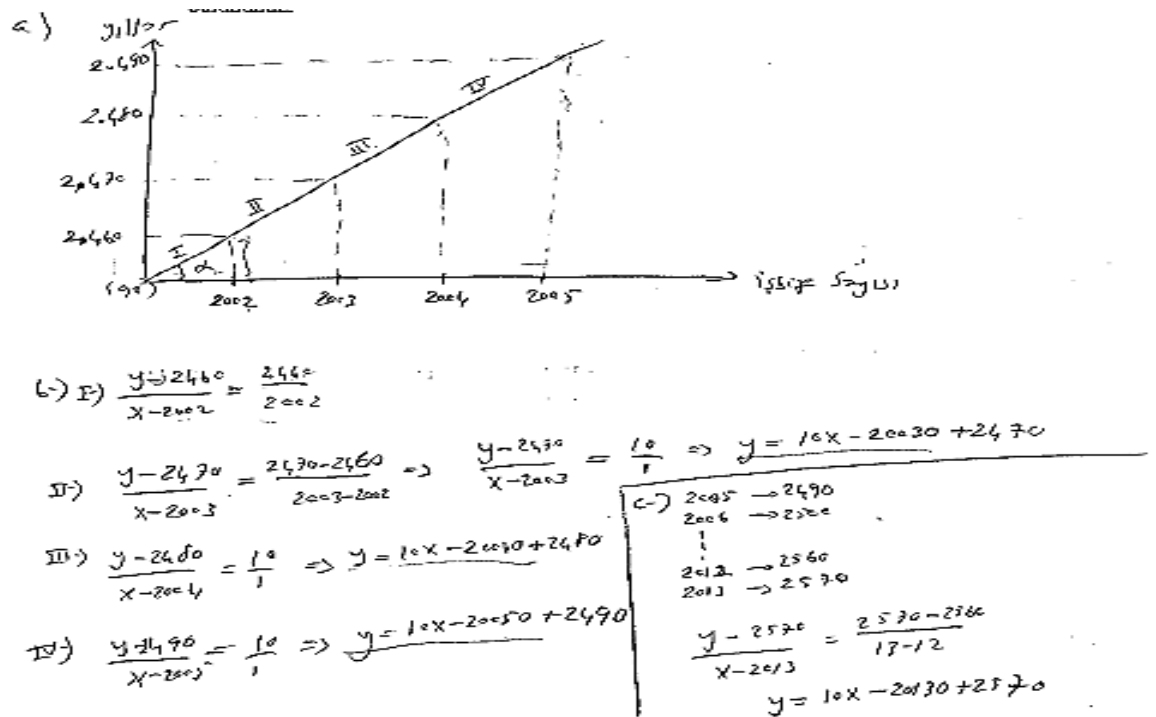 a)
yıllar
2.490
2.480
2,470
2,460
I
II
III
IV
α
2002
2003
2004
2005
işsiz sayısı
b-) I-) y-2460 / x-2002 = 2460 / 2002
II-) y-2470 / x-2003 = 2470-2460 / 2003-2002 => y-2470 / x-2003 = 10 / 1 => y = 10x-20030+2470
III-) y-2480 / x-2004 = 10 / 1 => y = 10x-20040+2480
IV-) y-2490 / x-2005 = 10 / 1 => y = 10x-20050+2490
c-) 2005 → 2490
2012 → 2560
2013 → 2570
y-2570 / x-2013 = 2570-2560 / 13-12
y = 10x-20130+2570